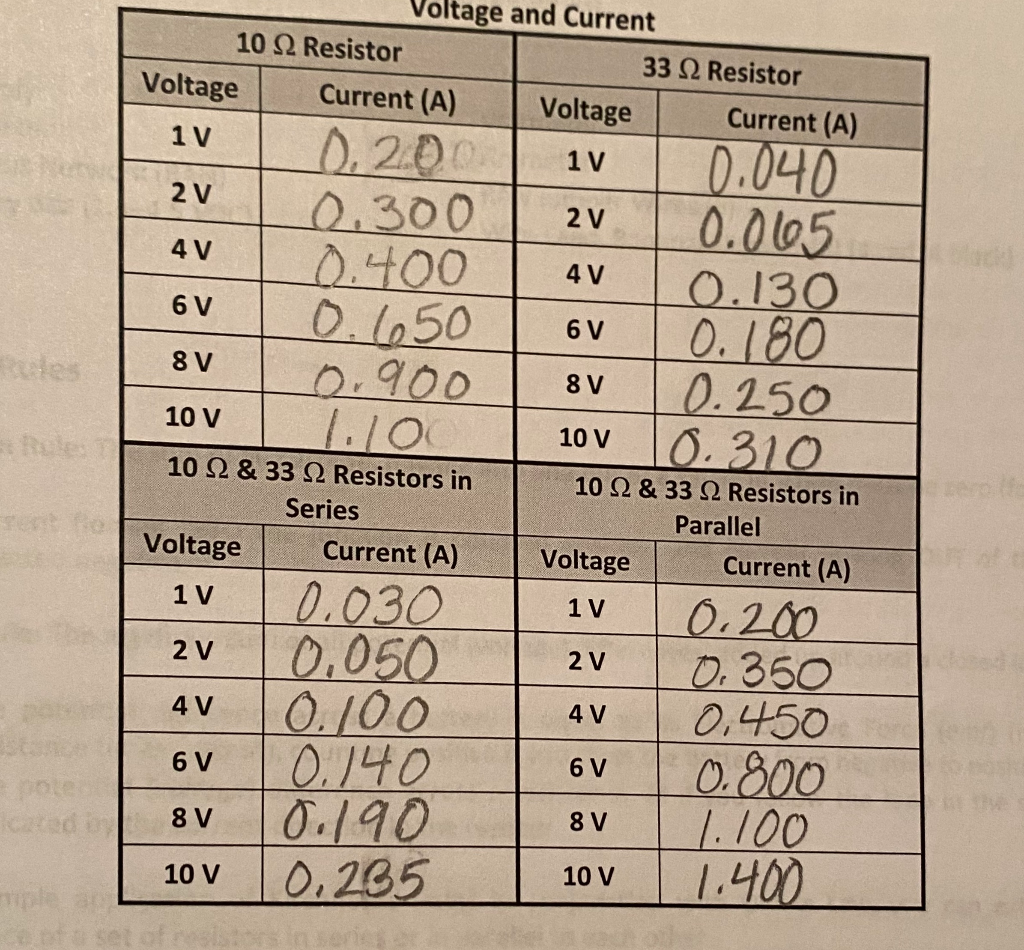 Voltage and Current
10 Ω Resistor 33 Ω Resistor
Voltage Current (A) Voltage Current (A)
1 V 0.200 1 V 0.040
2 V 0.300 2 V 0.065
4 V 0.400 4 V 0.130
6 V 0.650 6 V 0.180
8 V 0.900 8 V 0.250
10 V 1.100 10 V 0.310
10 Ω & 33 Ω Resistors in Series 10 Ω & 33 Ω Resistors in Parallel
Voltage Current (A) Voltage Current (A)
1 V 0.030 1 V 0.200
2 V 0.050 2 V 0.350
4 V 0.100 4 V 0.450
6 V 0.140 6 V 0.800
8 V 0.190 8 V 1.100
10 V 0.235 10 V 1.400